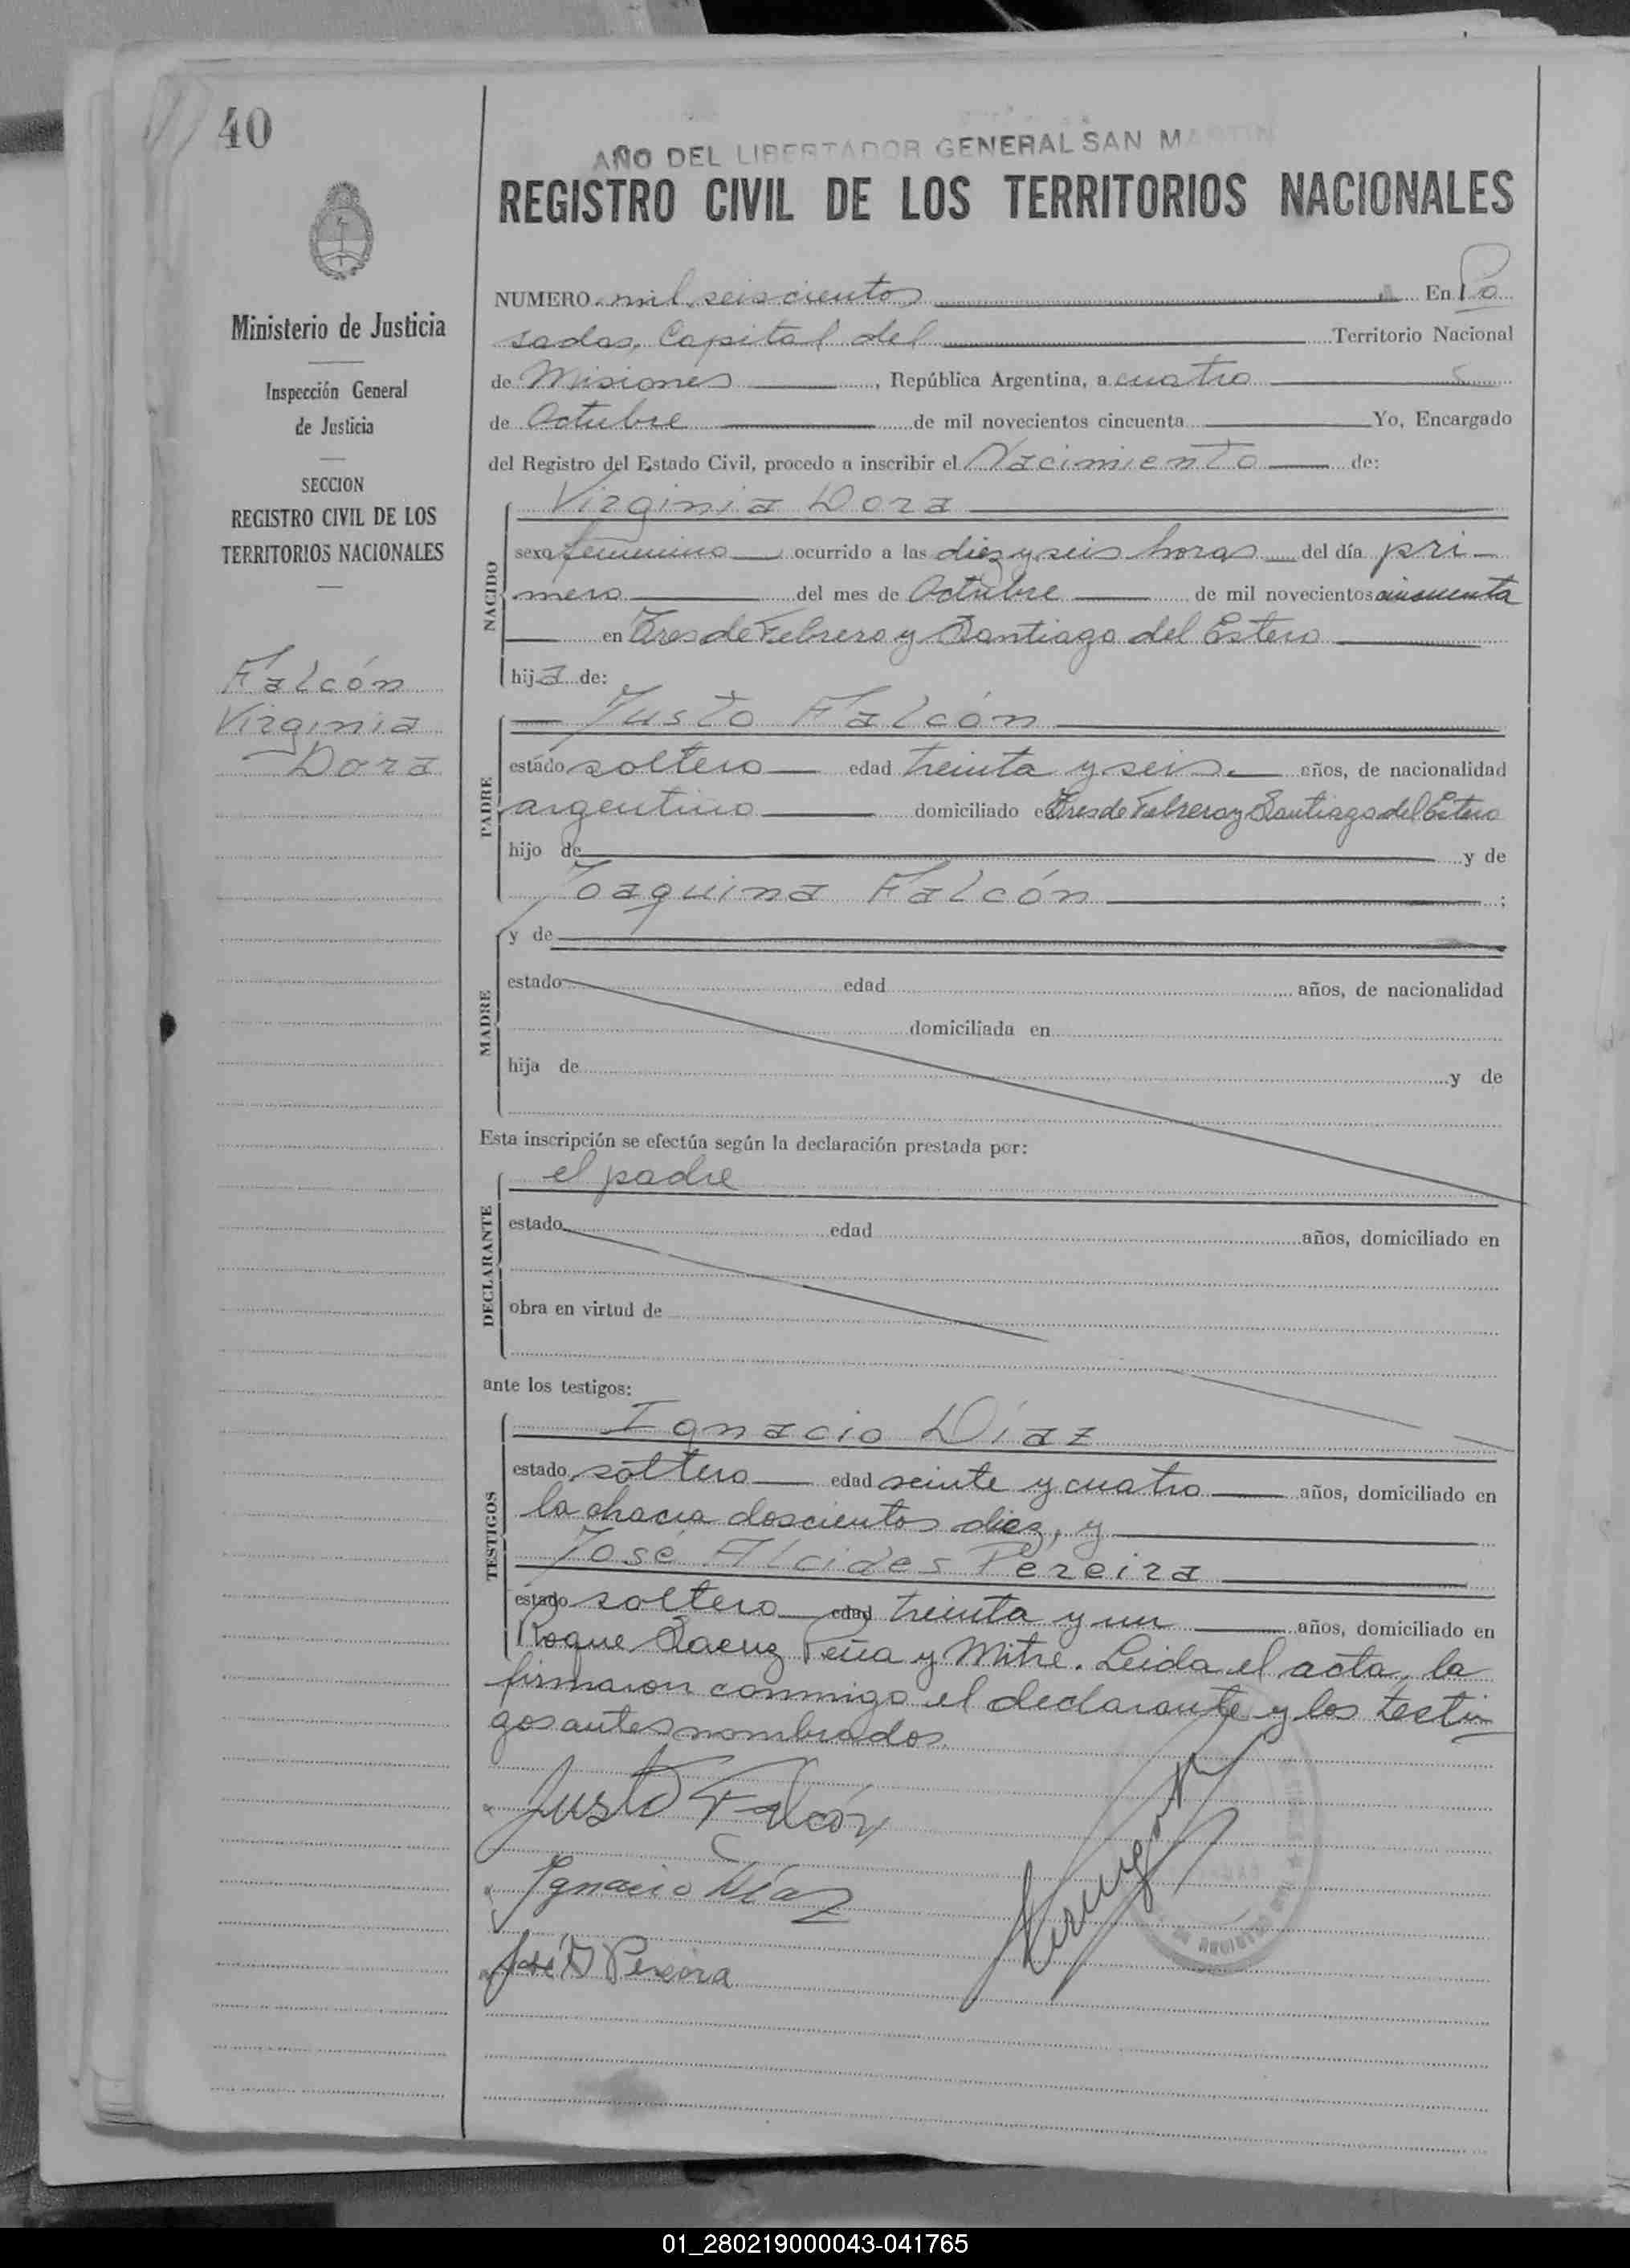 40
AÑO DEL LIBERTADOR GENERAL SAN MARTIN
REGISTRO CIVIL DE LOS TERRITORIOS NACIONALES
Ministerio de Justicia
Inspección General
de Justicia
SECCION
REGISTRO CIVIL DE LOS
TERRITORIOS NACIONALES
Falcón
Virginia
Dora
NUMERO mil seiscientos En Po
sadas, Capital del Territorio Nacional
de Misiones, República Argentina, a cuatro
de Octubre de mil novecientos cincuenta Yo, Encargado
del Registro del Estado Civil, procedo a inscribir el Nacimiento de:
NACIDO
Virginia Dora
sexo femenino ocurrido a las diez y seis horas del día pri-
mero del mes de Octubre de mil novecientos cincuenta
en Tres de Febrero y Santiago del Estero
hija de:
PADRE
Justo Falcón
estado soltero edad treinta y seis años, de nacionalidad
argentino domiciliado en Tres de Febrero y Santiago del Estero
hijo de y de
Joaquina Falcón;
MADRE
y de
estado edad años, de nacionalidad
domiciliada en
hija de y de
Esta inscripción se efectúa según la declaración prestada por:
DECLARANTE
el padre
estado edad años, domiciliado en
obra en virtud de
ante los testigos:
TESTIGOS
Ignacio Díaz
estado soltero edad veinte y cuatro años, domiciliado en
la chacra doscientos diez, y
José Alcides Pereira
estado soltero edad treinta y un años, domiciliado en
Roque Saenz Peña y Mitre. Leida el acta, la
firmaron conmigo el declarante y los testi-
gos antes nombrados.
Justo Falcón
Ignacio Díaz
José A Pereira
01_280219000043-041765